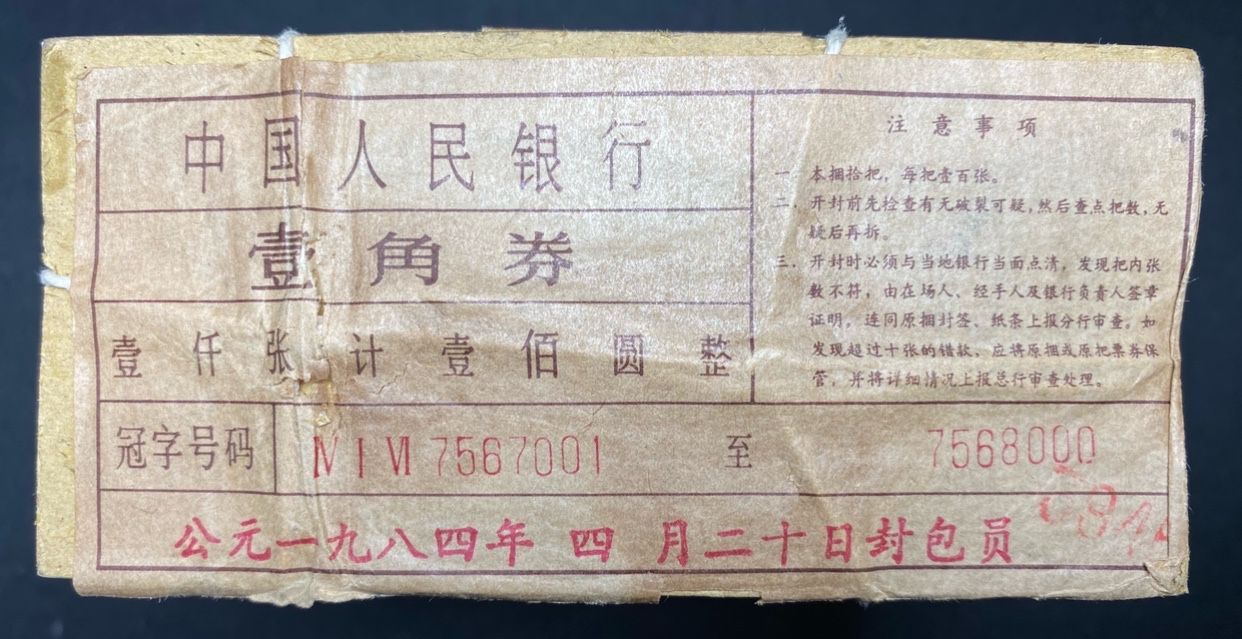 中国人民银行
壹角券
壹仟张计壹佰圆整
注意事项
一．本捆拾把，每把壹百张。
二．开封前先检查有无破裂可疑，然后查点把数，无
疑后再拆。
三．开封时必须与当地银行当面点清，发现把内张
数不符，由在场人、经手人及银行负责人签章
证明，连同原捆封签、纸条上报分行审查。如
发现超过十张的错款，应将原捆或原把票券保
管，并将详细情况上报总行审查处理。
冠字号码 Ⅳ Ⅰ Ⅵ 7567001 至 7568000
公元一九八四年 四 月二十日封包员